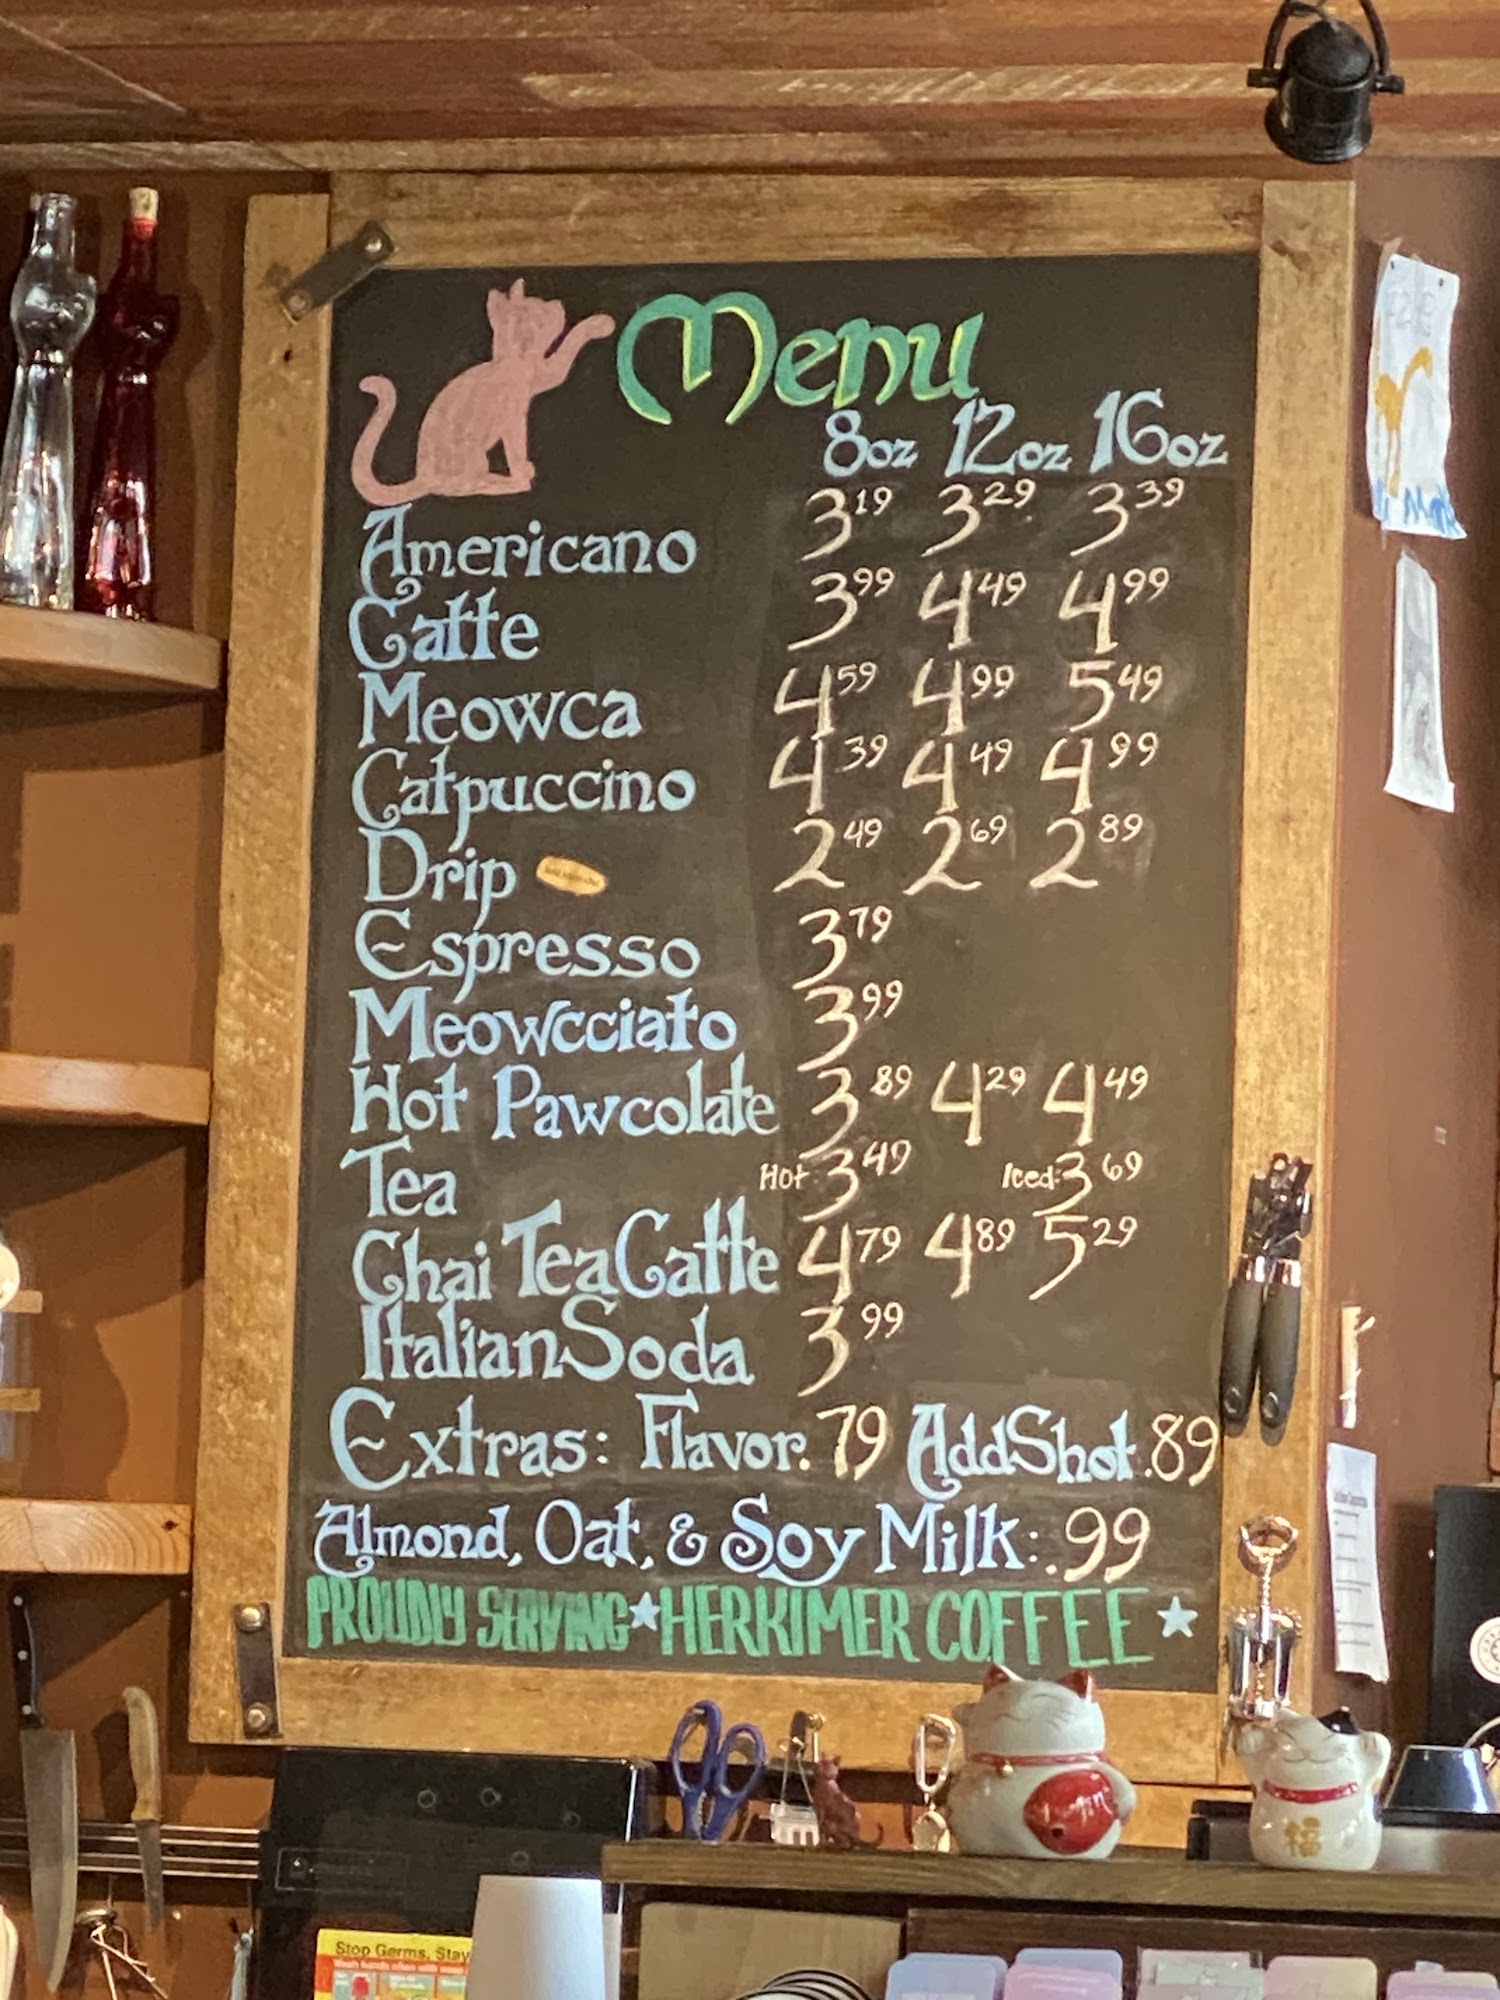 Menu
8oz 12oz 16oz
Americano 3.19 3.29 3.39
Catte 3.99 4.49 4.99
Meowca 4.59 4.99 5.49
Catpuccino 4.39 4.49 4.99
Drip 2.49 2.69 2.89
Espresso 3.79
Meowcciato 3.99
Hot Pawcolate 3.89 4.29 4.49
Tea Hot: 3.49 Iced: 3.69
Chai Tea Catte 4.79 4.89 5.29
Italian Soda 3.99
Extras: Flavor .79 Add Shot .89
Almond, Oat, & Soy Milk: .99
PROUDLY SERVING ★ HERKIMER COFFEE ★
福
Stop Germs, Stay